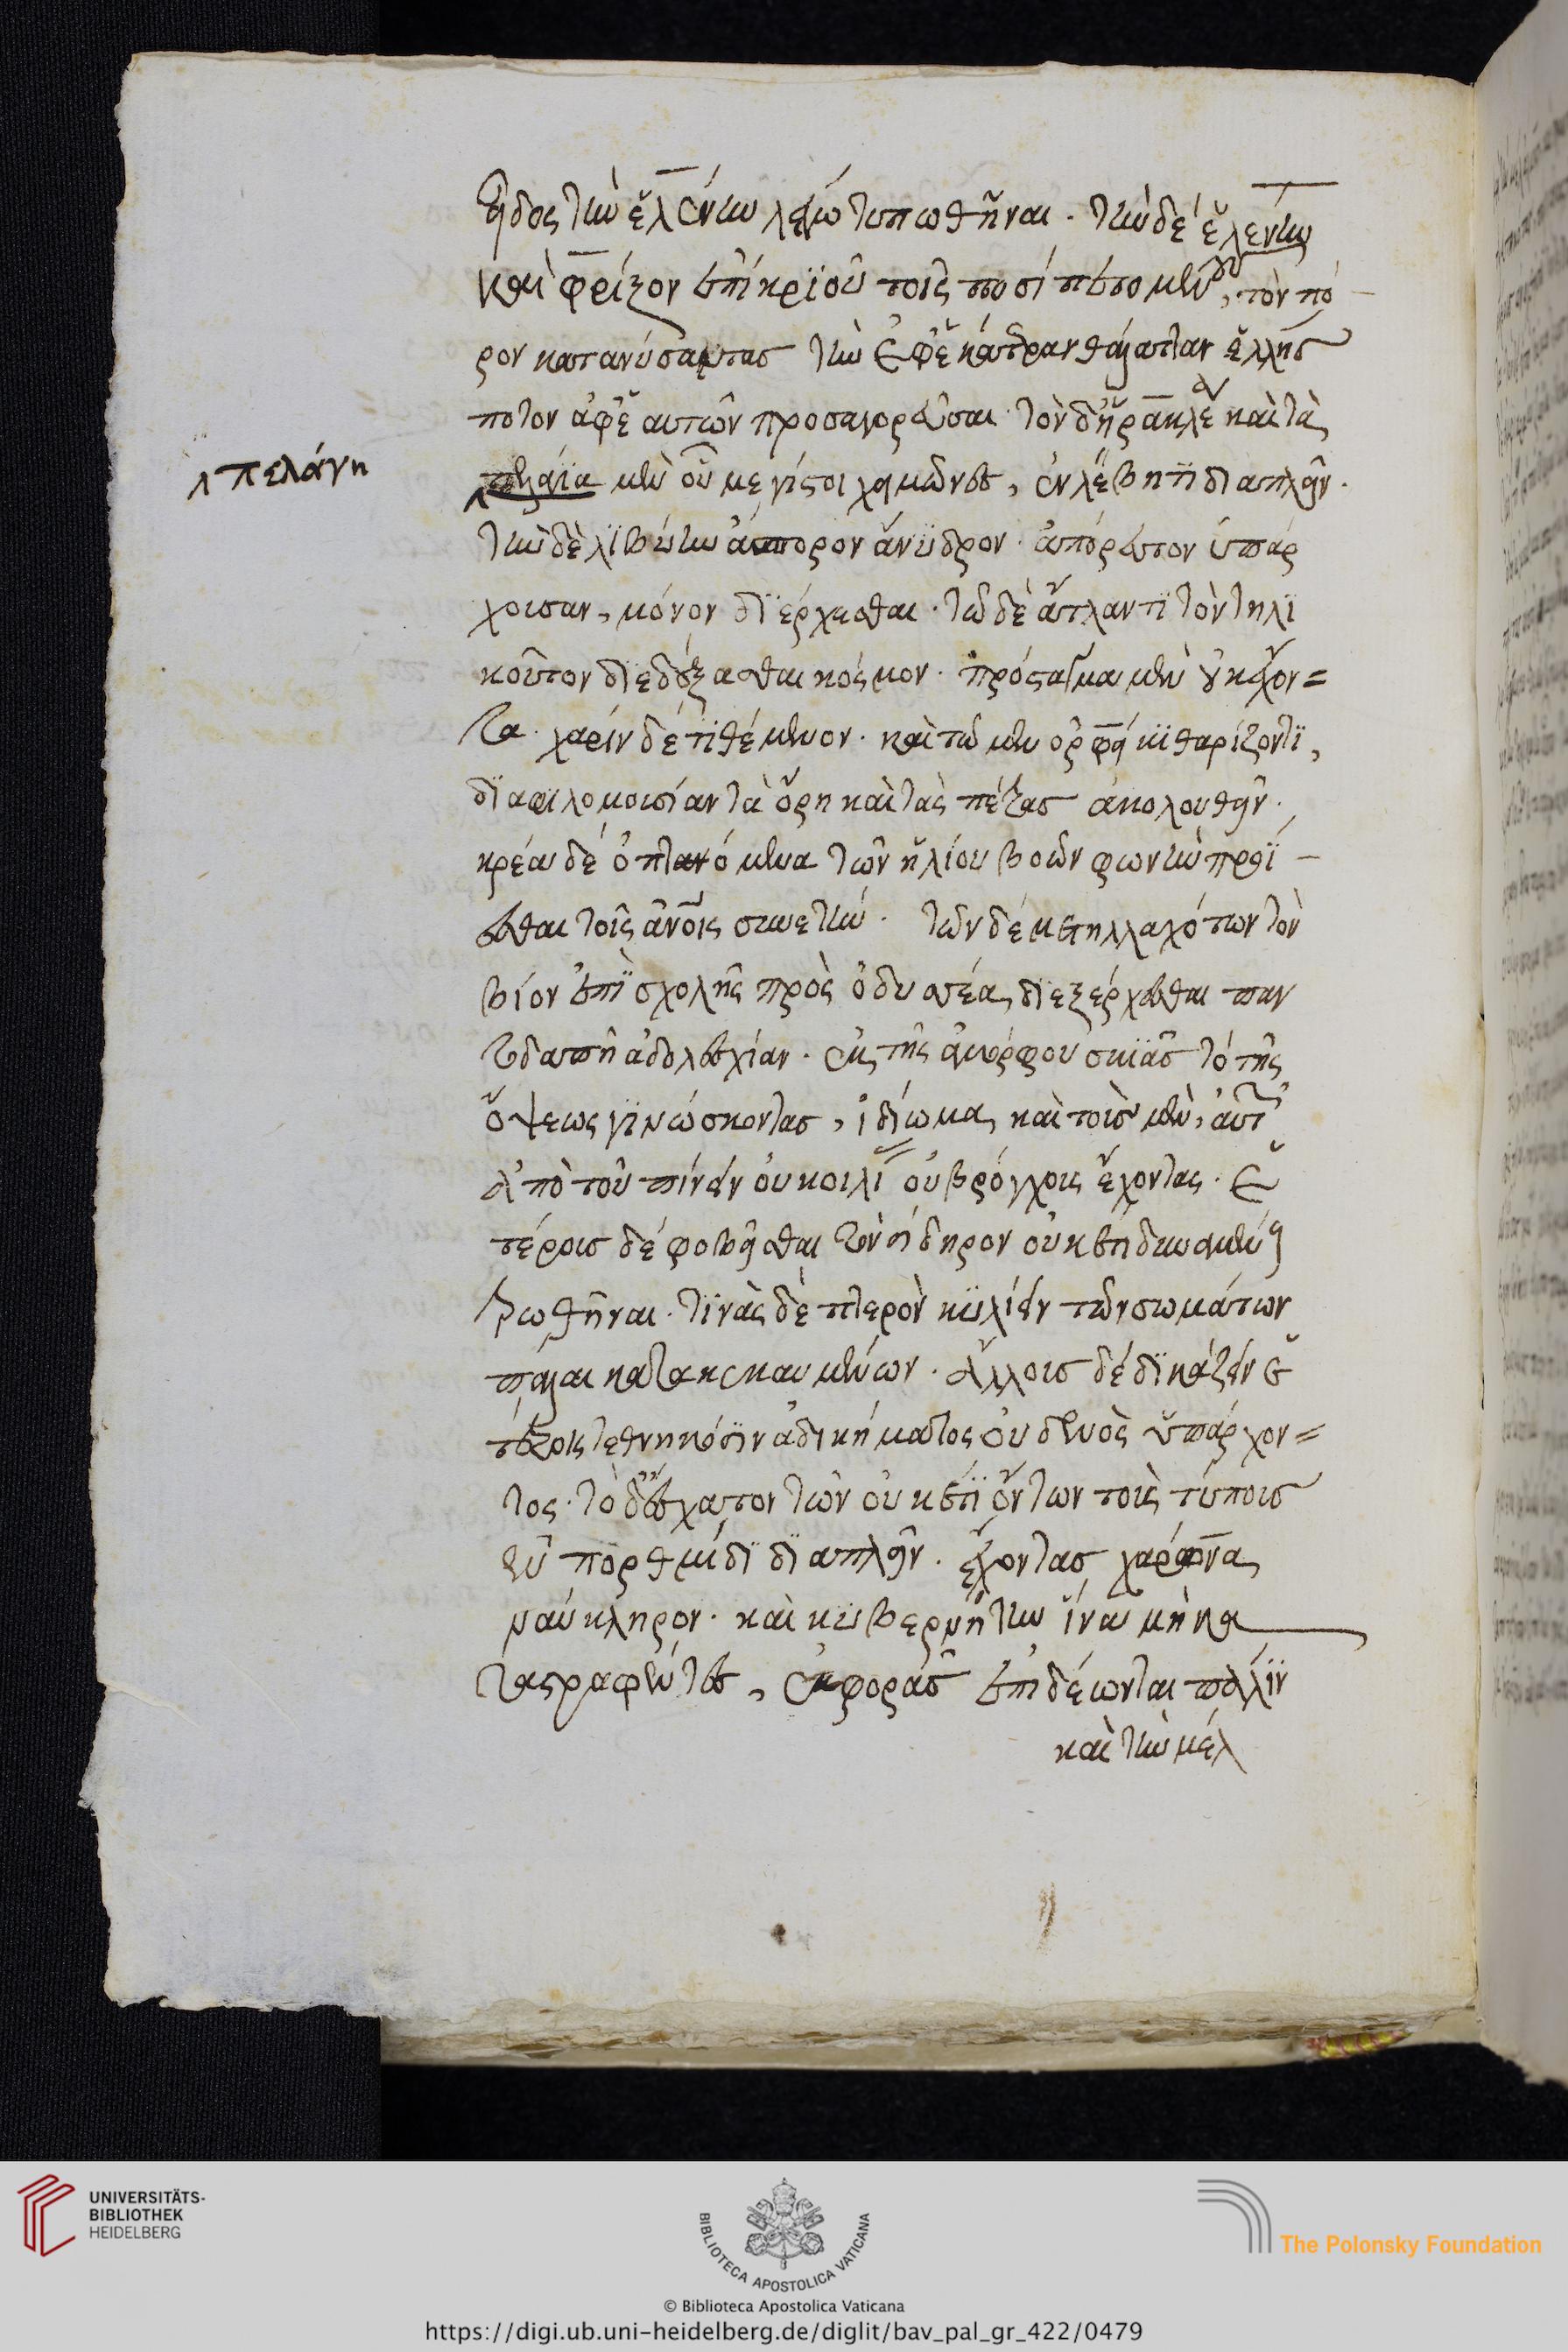 εἶδος τὴν ἑλένην λευκῶ τυπωθῆναι. τὴν δὲ ἕλενην
καὶ φρίξον ἐπὶ κριοῦ τοῖς ποσὶ πετομένου, τὸν πό
ρον κατανύσαντας τὴν ἐφ' ἑκάτεραν θάλατταν ἑλλής
ποτον ἀφ' ἑαυτῶν προσαγορεῦσαι. τὸν δ' ἡρακλέα καὶ τὰ
πελάγια μὲν οὗ μέγιστοι χειμῶνες, ἐν λέβητι διαπλεῖν.
ʌ πελάγη
τὴν δὲ λιβύην ἄπορον ἄνυδρον. ἀπόρευτον ὑπάρ
χουσαν, μόνον διέρχεσθαι. τῶ δὲ ἄτλαντι τὸν τηλι
κοῦτον διεδέξασθαι κόσμον. πρόσταγμα μὲν οὐκ ἔχον=
τα. χάριν δὲ τιθέμενον. καὶ τῶ μὲν ὀρφεῖ κιθαρίζοντι,
διὰ φιλομουσίαν τὰ ὄρη καὶ τὰς πέτρας ἀκολουθεῖν.
κρέα δὲ ὀπτανόμενα τῶν ἡλίου βοῶν φωνὴν προΐ
εσθαι τοῖς ἀνοις συνετήν. τῶν δὲ μετηλλαχότων τὸν
βίον ἐπὶ σχολῆς πρὸς ὀδυσσέα, διεξέρχεσθαι παν
τοδαπῆ ἀδολεσχίαν. ἐκ τῆς ἀμόρφου σκιᾶς τὸ τῆς
ὄψεως γινώσκοντας, ἰδίωμα, καὶ τοὺς μὲν, αὐτ
ἀπὸ τοῦ πίνειν οὐ κοιλί οὐ βρόγχους ἔχοντας. ἑ
τέρους δὲ φοβεῖσθαι τὸν σίδηρον οὐκέτι δυναμένους
τρωθῆναι. τινὰς δὲ πτερὸν κυλίειν τῶν σωμάτων
πάλαι κατακεκαυμένων. ἄλλους δὲ δικάζειν ἑ
τέροις τεθνηκόσιν ἀδικήματος οὐδενὸς ὑπάρχον=
τος. τὸ δ' ἔσχατον τῶν οὐκέτι ὄντων τοὺς τύπους
ἐν πορθμίδι διαπλεῖν. ἔχοντας χάρωνα
ναύκληρον. καὶ κυβερνήτην ἵνα μὴ κα
ταστραφέντες, ἐκφορᾶς ἐπιδέωνται πάλιν
καὶ τὴν μέλ
UNIVERSITÄTS-
BIBLIOTHEK
HEIDELBERG
BIBLIOTECA APOSTOLICA VATICANA
The Polonsky Foundation
© Biblioteca Apostolica Vaticana
https://digi.ub.uni-heidelberg.de/diglit/bav_pal_gr_422/0479